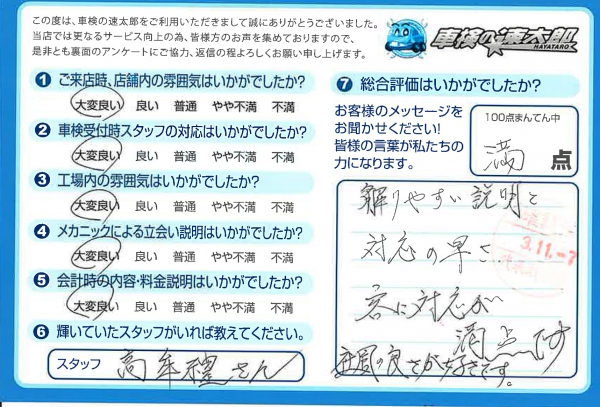 この度は、車検の速太郎をご利用いただきまして誠にありがとうございました。
当店では更なるサービス向上の為、皆様方のお声を集めておりますので、
是非とも裏面のアンケートにご協力、返信の程よろしくお願い申し上げます。
車検の速太郎
HAYATARO
1 ご来店時、店舗内の雰囲気はいかがでしたか?
大変良い 良い 普通 やや不満 不満
2 車検受付時スタッフの対応はいかがでしたか?
大変良い 良い 普通 やや不満 不満
3 工場内の雰囲気はいかがでしたか?
大変良い 良い 普通 やや不満 不満
4 メカニックによる立会い説明はいかがでしたか?
大変良い 良い 普通 やや不満 不満
5 会計時の内容・料金説明はいかがでしたか?
大変良い 良い 普通 やや不満 不満
6 輝いていたスタッフがいれば教えてください。
スタッフ 高牟禮さん
7 総合評価はいかがでしたか?
お客様のメッセージを
お聞かせください!
皆様の言葉が私たちの
力になります。
100点まんてん中
満 点
解りやすい説明と
対応の早さ
3.11.-7
客に対応が
満点です
社風の良さが好きです。